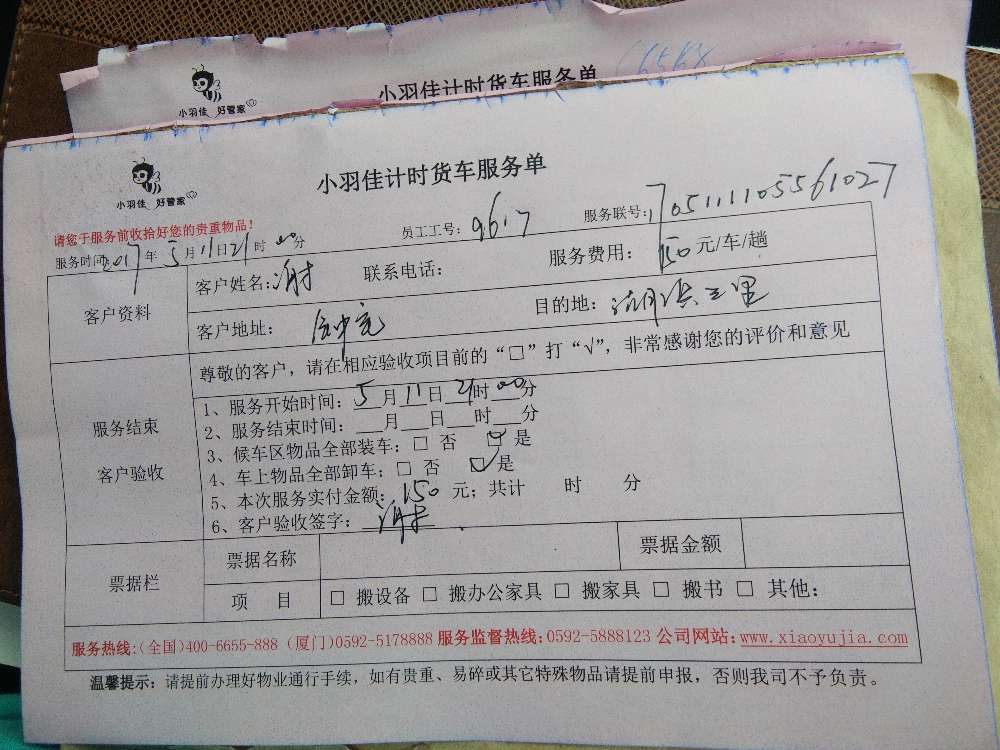 小羽佳 好管家
小羽佳计时货车服务单
小羽佳 好管家
小羽佳计时货车服务单
请您于服务前收拾好您的贵重物品!
员工工号: 9617
服务联号: 1705111105561027
服务时间: 2017年5月11日21时00分
客户资料
客户姓名: 谢 联系电话: 服务费用: 150元/车/趟
客户地址: 目的地: 湖滨三里
服务结束
客户验收
尊敬的客户，请在相应验收项目前的“□”打“√”，非常感谢您的评价和意见
1、服务开始时间: 5月11日21时00分
2、服务结束时间: 月 日 时 分
3、候车区物品全部装车: □ 否 □ 是
4、车上物品全部卸车: □ 否 □ 是
5、本次服务实付金额: 150元; 共计 时 分
6、客户验收签字: 谢
票据栏
票据名称 票据金额
项 目 □ 搬设备 □ 搬办公家具 □ 搬家具 □ 搬书 □ 其他:
服务热线:(全国)400-6655-888 (厦门)0592-5178888 服务监督热线:0592-5888123 公司网站:www.xiaoyujia.com
温馨提示: 请提前办理好物业通行手续，如有贵重、易碎或其它特殊物品请提前申报，否则我司不予负责。